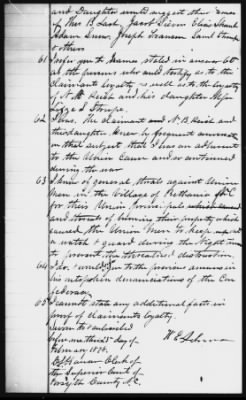 and Daughter would suggest the names
of Thos B. Lash, Jacob Elias
Adam Joseph Transou
& others
61 I refer you to names stated in answer 60
as the persons who will testify as to the
claimants loyalty as well as to the loyalty
of N. B. and his daughter
62 I Ans. The claimant and N. B.
& his daughter knew by frequent
on that subject that I was an adherent
to the Union Cause and so continued
during the war
63 I knew of general threats against Union
Men in the Village of Bethania N.C.
for their Union principals
and threats of burning their property which
caused the Union Men to keep
a watch & guard during the Night time
to prevent the threatened destruction.
64 I do & would to the previous answers in
his outspoken denunciations of the Con
federacy
65 I cannot state any additional facts in
proof of claimants loyalty.
Sworn to & subscribed
before me this 25 day of
February 1874.
Clerk of
the Superior Court of
Forsyth County N.C.